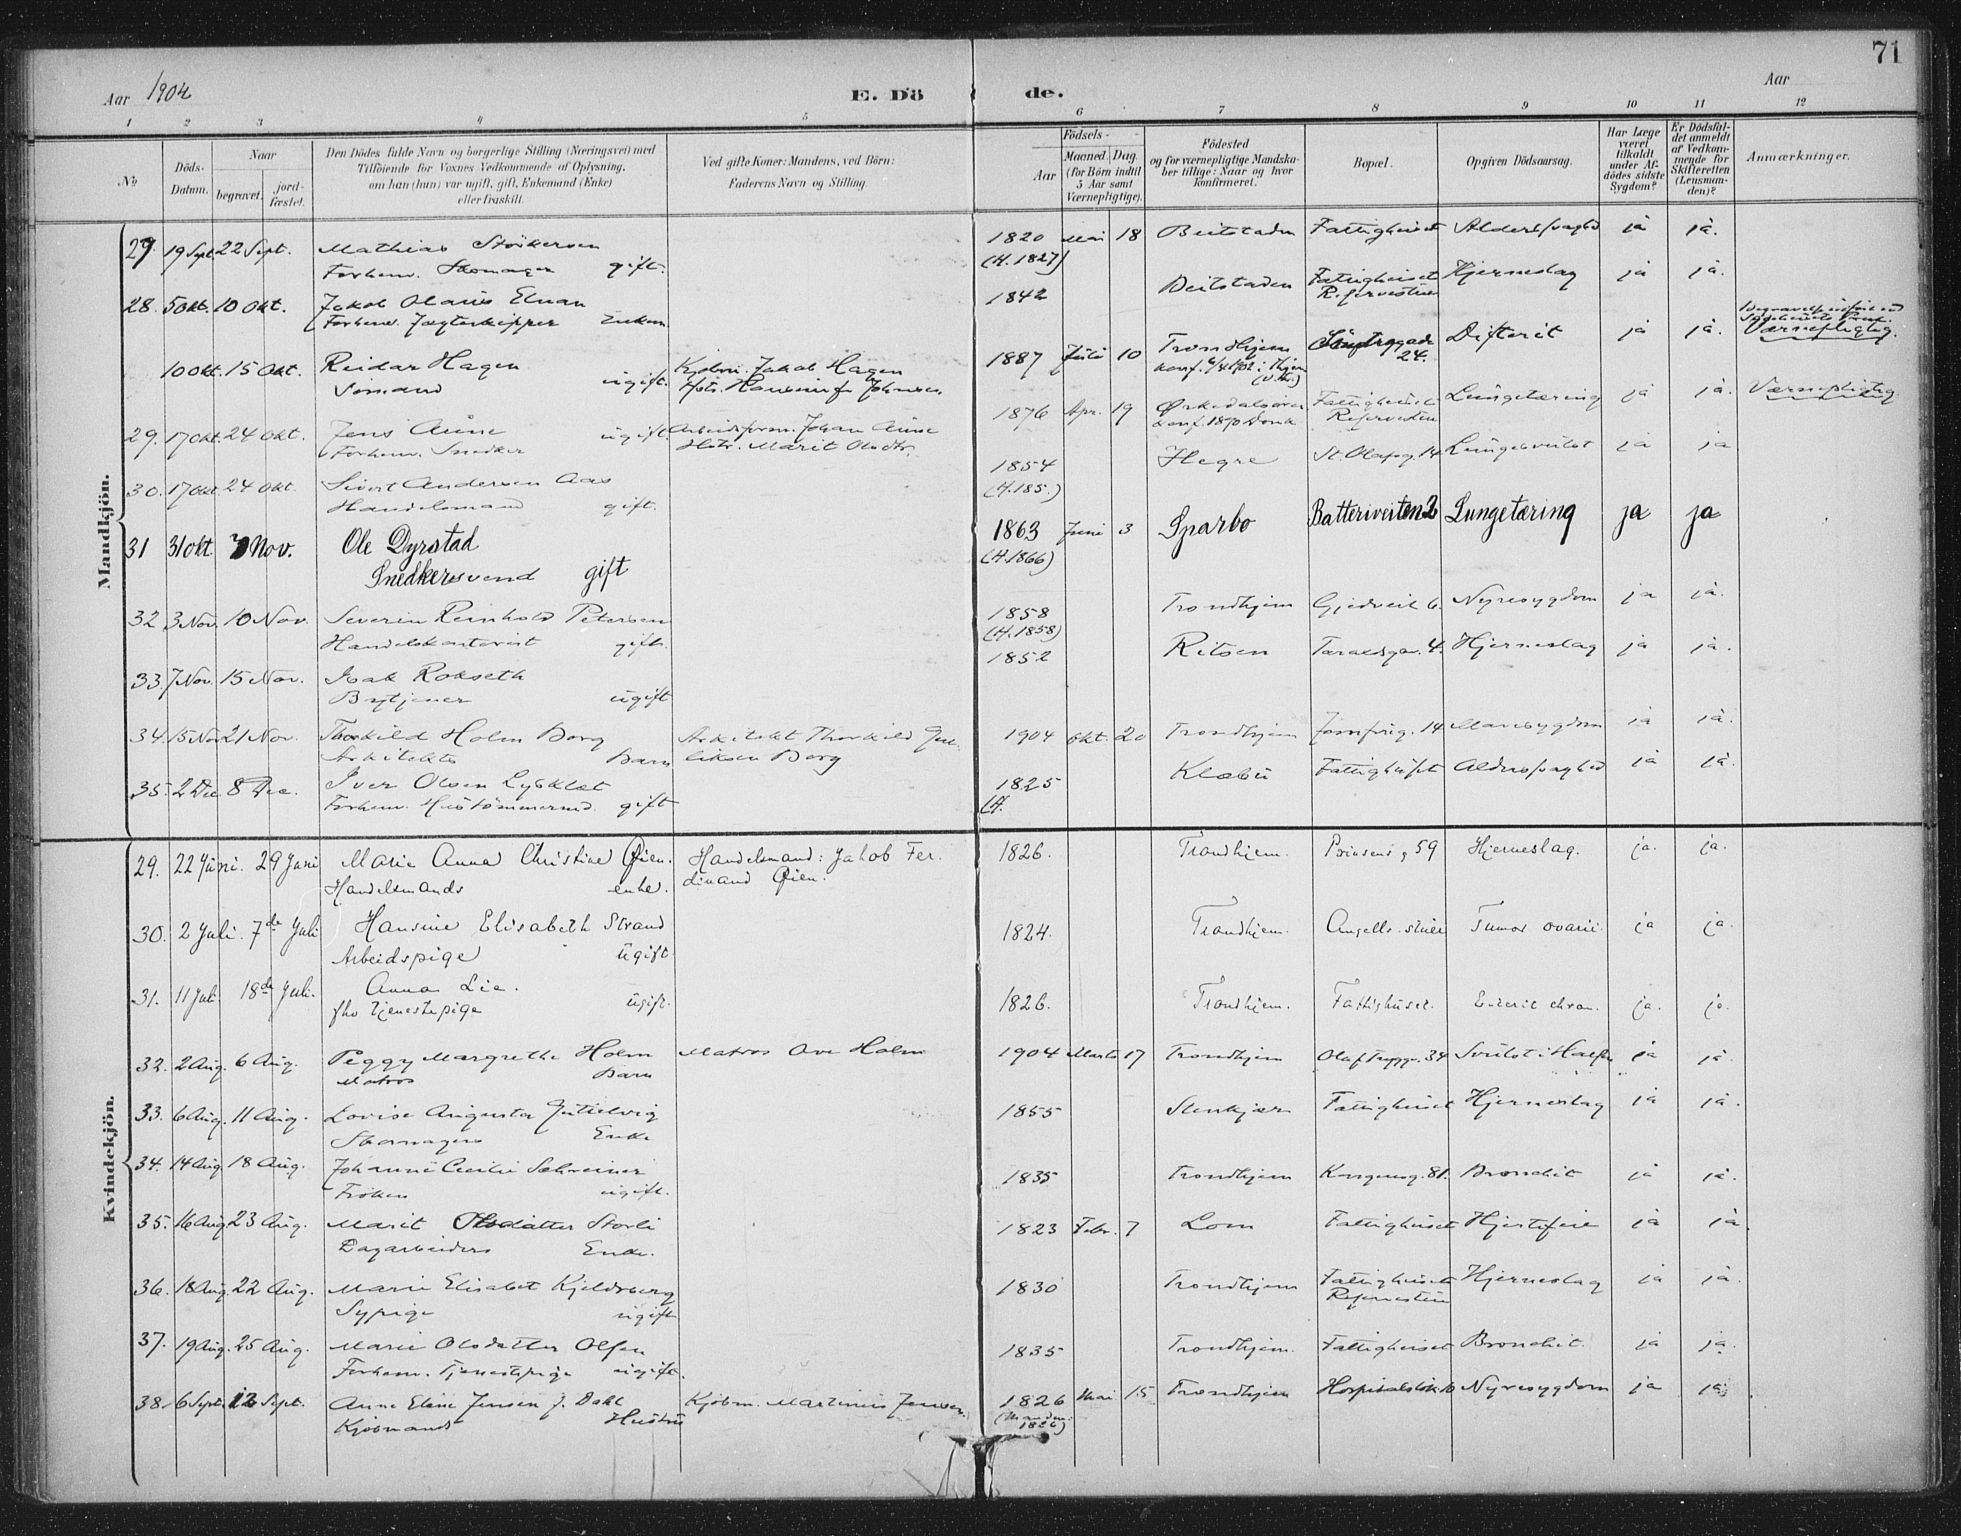 71
Aar 1904
E. Dö de.
Aar
1 2 3 4 5 6 7 8 9 10 11 12
No
Döds-Datum.
Naar
begravet. jordfæstet.
Den Dödes fulde Navn og borgerlige Stilling (Næringsvei) med
Tilföiende for Voxnes Vedkommende af Oplysning,
om han (hun) var ugift, gift, Enkemand (Enke)
eller fraskilt.
Ved gifte Koner: Mandens, ved Börn:
Faderens Navn og Stilling.
Födsels-
Aar
Maaned. Dag.
(for Börn indtil
5 Aar samt
Værnepligtige).
Födested
og for værnepligtige Mandska-
ber tillige: Naar og hvor
konfirmeret.
Bopæl.
Opgiven Dödsaarsag.
Har Læge
været
tilkaldt
under Af-
dödes sidste
Sygdom?
Er Dödsfal-
det anmeldt
af Vedkom-
mende for
Skifteretten
(Lensman-
den)?
Anmærkninger.
Mandkjön.
27. 19 Sept. 22 Sept. Mathias Störkersen 1820 Mai 18 Beitstaden Fattighuset Alderssvaghed ja ja.
Forhenv. Skomager gift. (H. 1827)
28. 5 Okt. 10 Okt. Jakob Olaus Elnan 1842 Beitstaden Fattighuset Hjerneslag ja ja.
Forhenv. Jægteskipper Enkem. Reservestuen
10 Okt. 15 Okt. Reidar Hagen Kjøbm. Jakob Hagen 1887 Juli 10 Trondhjem 24. Difterit ja ja. Værnepligtig.
Sømand ugift. Hstr. Johnsen.
29. 17 Okt. 24 Okt. Jens Aune ugift. Arbeidsform. Johan Aune 1876 Apr. 19 Ørkedalsøren Fattighusets Lungetæring ja ja. Værnepligtig
Forhenv. Snedker Hstr. Marit Olsdtr. Reservestuen
30. 17 Okt. 24 Okt. Sivert Andersen Aas 1854 Hegre St. Olafsg. 14 Lungebetændelse ja ja
Handelsmand gift. (H. 185.)
31 31 Okt. 7 Nov. Ole Dyrstad 1863 Juni 3 Sparbo Batteriveiten 2 Lungetæring ja ja
Snedkersvend gift (H. 1866)
32 3 Nov. 10 Nov. Severin Reinhold Petersen 1858 Trondhjem Gjedveit 6. Nyresygdom ja ja.
Handelskontorist gift. (H. 1858)
33. 7 Nov. 15 Nov. Isak Rokseth 1852 Ritsen 4. Hjerneslag ja ja.
Bytjener ugift
34. 15 Nov. 21 Nov. Thorkild Holm Borg Arkitekt Thorkild Gul- 1904 Okt. 20 Trondhjem Jomfrug. 14 Mavesygdom ja ja.
Arkitekts Barn liksen Borg
35. 2 Dec. 8 Dec. Iver Olsen Lysklæt 1825 Klæbu Fattighuset Alderssvaghed ja ja.
Forhenv. Hustømmermd. gift (H.
Kvindekjön.
29. 22 Juni. 29 Juni Marie Anna Christine Øien. Handelsmand: Jakob Fer- 1826. Trondhjem. Prinsens g 59 Hjerneslag. ja. ja.
Handelsmands enke. dinand Øien.
30. 2 Juli. 7de Juli Hansine Elisabeth Strand 1824. Trondhjem. Angells stuer Tumor ovarii. ja ja.
Arbeidspige ugift
31. 11 Juli 18de Juli. Anna Lie. 1826. Trondhjem. Fattighuset. Enterit chron. ja. ja.
fhv Tjenestepige ugift.
32. 2 Aug. 6 Aug. Peggy Margrethe Holm Matros Ove Holm 1904 Marts 17 Trondhjem Olaf Tryggv. 34 Svulst i Halsen ja ja.
Matros Barn
33. 6 Aug. 11 Aug. Lovise Augusta 1855 Stenkjær Fattighuset Hjerneslag ja ja.
Skomagers Enke
34. 14 Aug. 18 Aug. Johanne Cecilie Schreiner 1835 Trondhjem Kongensg. 81. Bronchit ja ja.
Frøken ugift.
35. 16 Aug. 23 Aug. Marit Olsdatter Storli 1823 Febr. 7 Lom Fattighuset Hjertefeil ja ja.
Dagarbeiders Enke.
36. 18 Aug. 22 Aug. Marie Elisabet Kjeldsberg 1830 Trondhjem Fattighusets Hjerneslag ja ja.
Sypige ugift Reservestuen
37. 19 Aug. 25 Aug. Marie Olsdatter Olsen 1835 Trondhjem. Fattighuset Bronchit. ja ja.
Forhenv. Tjenestepige ugift.
38. 6 Sept. 12 Sept. Anne Eline Jensen f. Dahl Kjøbm. Martinus Jensen. 1826 Mai 15 Trondhjem Nyresygdom ja ja.
Kjøbmands Hustru (Manden: 1826)